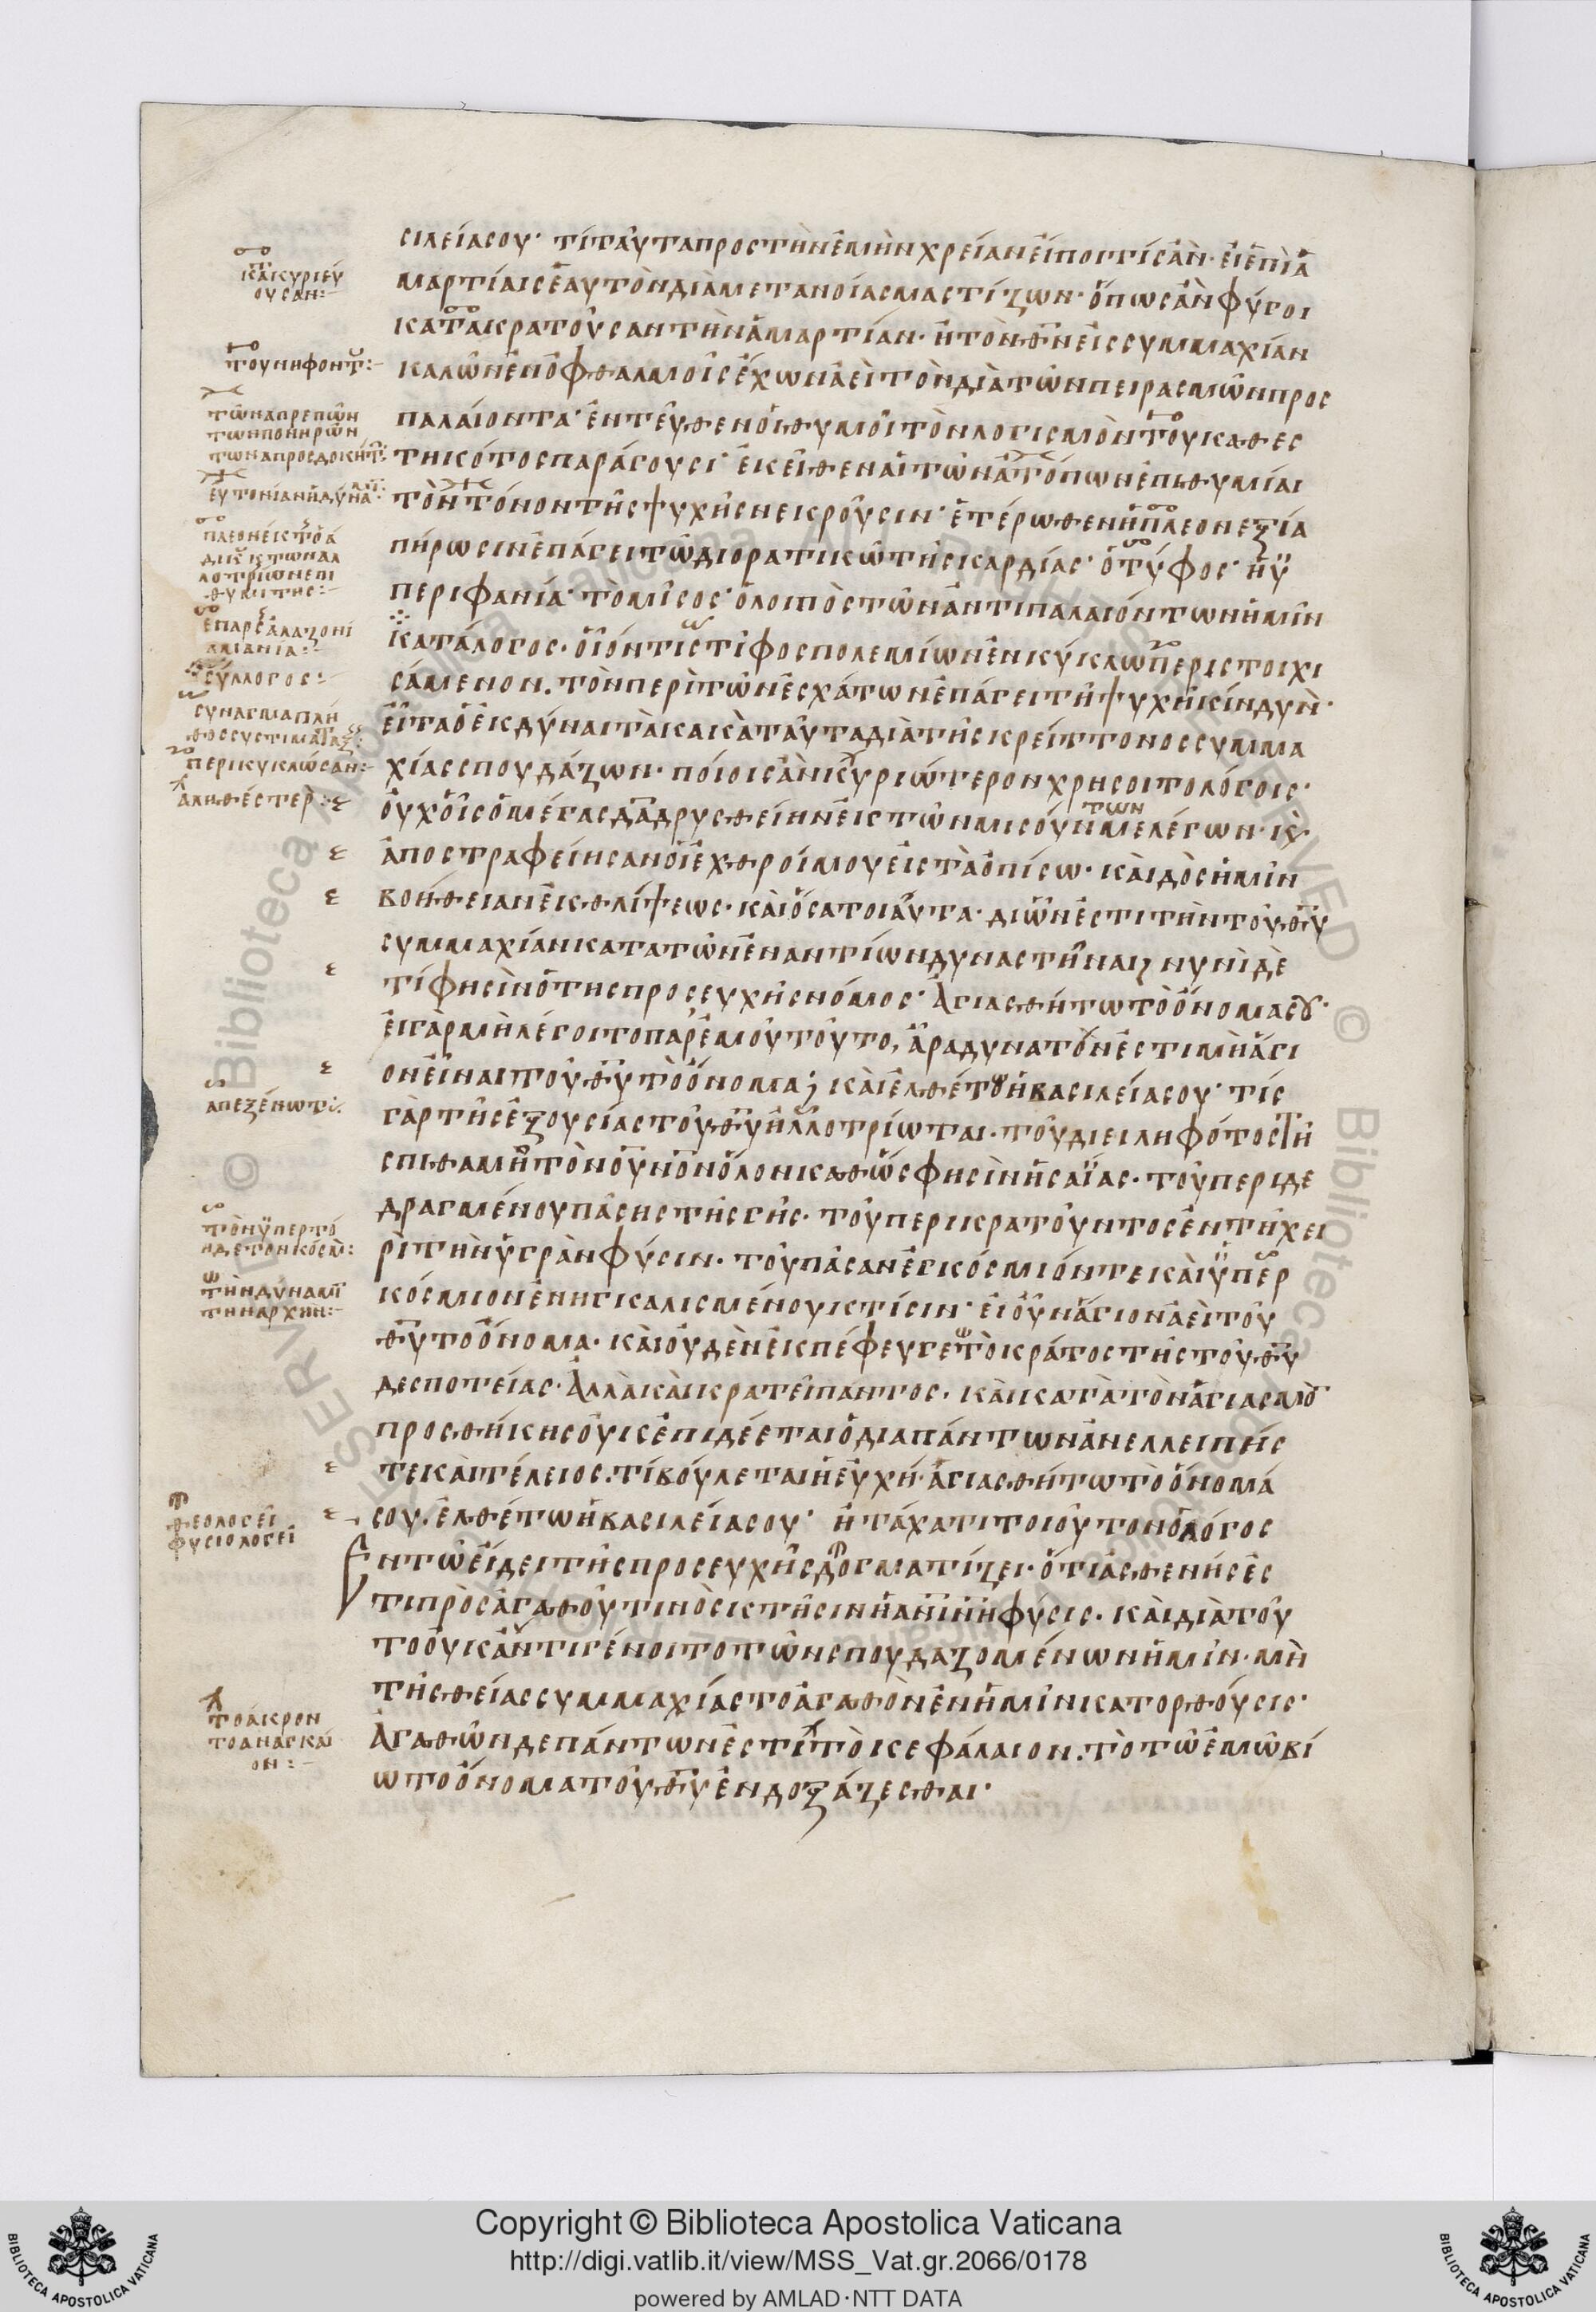 σιλεία σου· τί ταῦτα πρὸς τὴν ἐμὴν χρείαν εἴποι τίς ἂν· εἰ ἐπὶ ἁ
μαρτίαις ἑαυτὸν διὰ μετανοίας μαστίζων· ὅπως ἂν φύγοι
κατακρατοῦσαν τὴν ἁμαρτίαν· ἢ τὸν θν εἰς συμμαχίαν
καλῶν ἐν ὀφθαλμοῖς ἔχων ἀεὶ τὸν διὰ τῶν πειρασμῶν προς
παλαίοντα· ἐντεῦθεν οἱ θυμοὶ τὸν λογισμὸν τοῦ καθες
τηκότος παράγουσι· ἐκεῖθεν αἱ τῶν ἀτόπων ἐπιθυμίαι
τὸν τόνον τῆς ψυχῆς νεκροῦσιν· ἑτέρωθεν ἡ πλεονεξία
πήρωσιν ἐπάγει τῶ διορατικῶ τῆς καρδίας· ὁ τύφος· ἡ ὑ
περιφανία· τὸ μῖσος· ὁ λοιπὸς τῶν ἀντιπαλαιόντων ἡμῖν
κατάλογος· οἷόν τι στῖφος πολεμίων ἐν κύκλω περιστοιχι
σάμενον. τὸν περὶ τῶν ἐσχάτων ἐπάγει τῆ ψυχῆ κίνδυν·
εἶτα ὁ ἐκδύναι τὰ κακὰ ταῦτα διὰ τῆς κρείττονος συμμα
χίας σπουδάζων· ποίοις ἂν κυριώτερον χρήσοιτο λόγοις·
οὐχ οἷς ὁ μέγας δαδ ῥυσθείην εἰς τῶν μισούντων με λέγων· κ̀
ἀποστραφείησαν οἱ ἐχθροί μου εἰς τὰ ὀπίσω· καὶ δὸς ἡμῖν
βοήθειαν ἐκ θλίψεως· καὶ ὅσα τοιαῦτα· δι ὧν ἐστι τὴν τοῦ θυ
συμμαχίαν κατα τῶν ἐναντίων δυναστῆναι; νυνὶ δὲ
τί φησὶν ὁ τῆς προσευχῆς νόμος· Ἁγιασθήτω τὸ ὄνομά σου·
εἰ γὰρ μὴ λέγοιτο παρ ἐμοῦ τοῦτο, ἆρα δυνατόν ἐστι μὴ ἅγι
ον εἶναι τοῦ θυ τὸ ὄνομα; καὶ ἐλθέτω ἡ βασιλεία σου· τίς
γὰρ τῆς ἐξουσίας τοῦ θυ ἠλλοτρίωται· τοῦ διειληφότος τῆ
σπιθαμῆ τὸν οὐνὸν ὅλον καθώς φησὶν ἡσαΐας· τοῦ περιδε
δραγμένου πάσης τῆς γῆς· τοῦ περικρατοῦντος ἐν τῆ χει
ρὶ τὴν ὑγρὰν φύσιν· τοῦ πᾶσαν ἐγκόσμιόν τε καὶ ὑπερ
κόσμιον ἐνηγκαλισμένου κτίσιν· εἰ οὖν ἅγιον ἀεὶ τοῦ
θυ το ὄνομα· καὶ οὐδὲν ἐκπέφευγε τὸ κράτος τῆς τοῦ θυ
δεσποτείας· Ἀλλὰ καὶ κρατεῖ παντος· καὶ κατὰ τὸν ἁγιασμὸν
προσθήκης οὐκ ἐπιδέεται ὁ διαπάντων ἀνελλειπής
τε καὶ τέλειος. τί βούλεται ἡ εὐχή· ἁγιασθήτω τὸ ὄνομά
σου. ἐλθέτω ἡ βασιλεία σου· ἢ τάχα τι τοιοῦτον ὁ λόγος
Ἐν τῶ εἴδει τῆς προσευχῆς δογματίζει· ὅτι ἀσθενής ἐς
τι πρὸς ἀγαθοῦ τινὸς κτῆσιν ἡ ανινη φύσις· καὶ διὰ τοῦ
το οὐκ ἄν τι γένοιτο τῶν σπουδαζομένων ἡμῖν· μὴ
τῆς θείας συμμαχίας το ἀγαθὸν ἐν ἡμῖν κατορθούσις·
Ἀγαθῶν δε πάντων ἐστὶ τὸ κεφάλαιον. τὸ τῶ ἐμῶ βί
ω το ὄνομα τοῦ θυ ἐνδοξάζεσθαι·
κατακυριεύ
ουσαν:
του νήφοντ:
τῶν απρεπῶν
των πονηρῶν
των απροσδοκήτ:
ευτονίαν ἢ δύναμ
συλλογος:
περικυκλώσαν:
ἀληθέστερ:
απεξένωτ:
τὸν ὑπερ τό
νδε τον κόσμ:
τὴν δύναμ
την αρχην:
θεολογεῖ
φυσιολογεῖ
το ἄκρον
το αναγκαῖ
ον:
Copyright © Biblioteca Apostolica Vaticana
http://digi.vatlib.it/view/MSS_Vat.gr.2066/0178
powered by AMLAD·NTT DATA
BIBLIOTECA APOSTOLICA VATICANA
BIBLIOTECA APOSTOLICA VATICANA